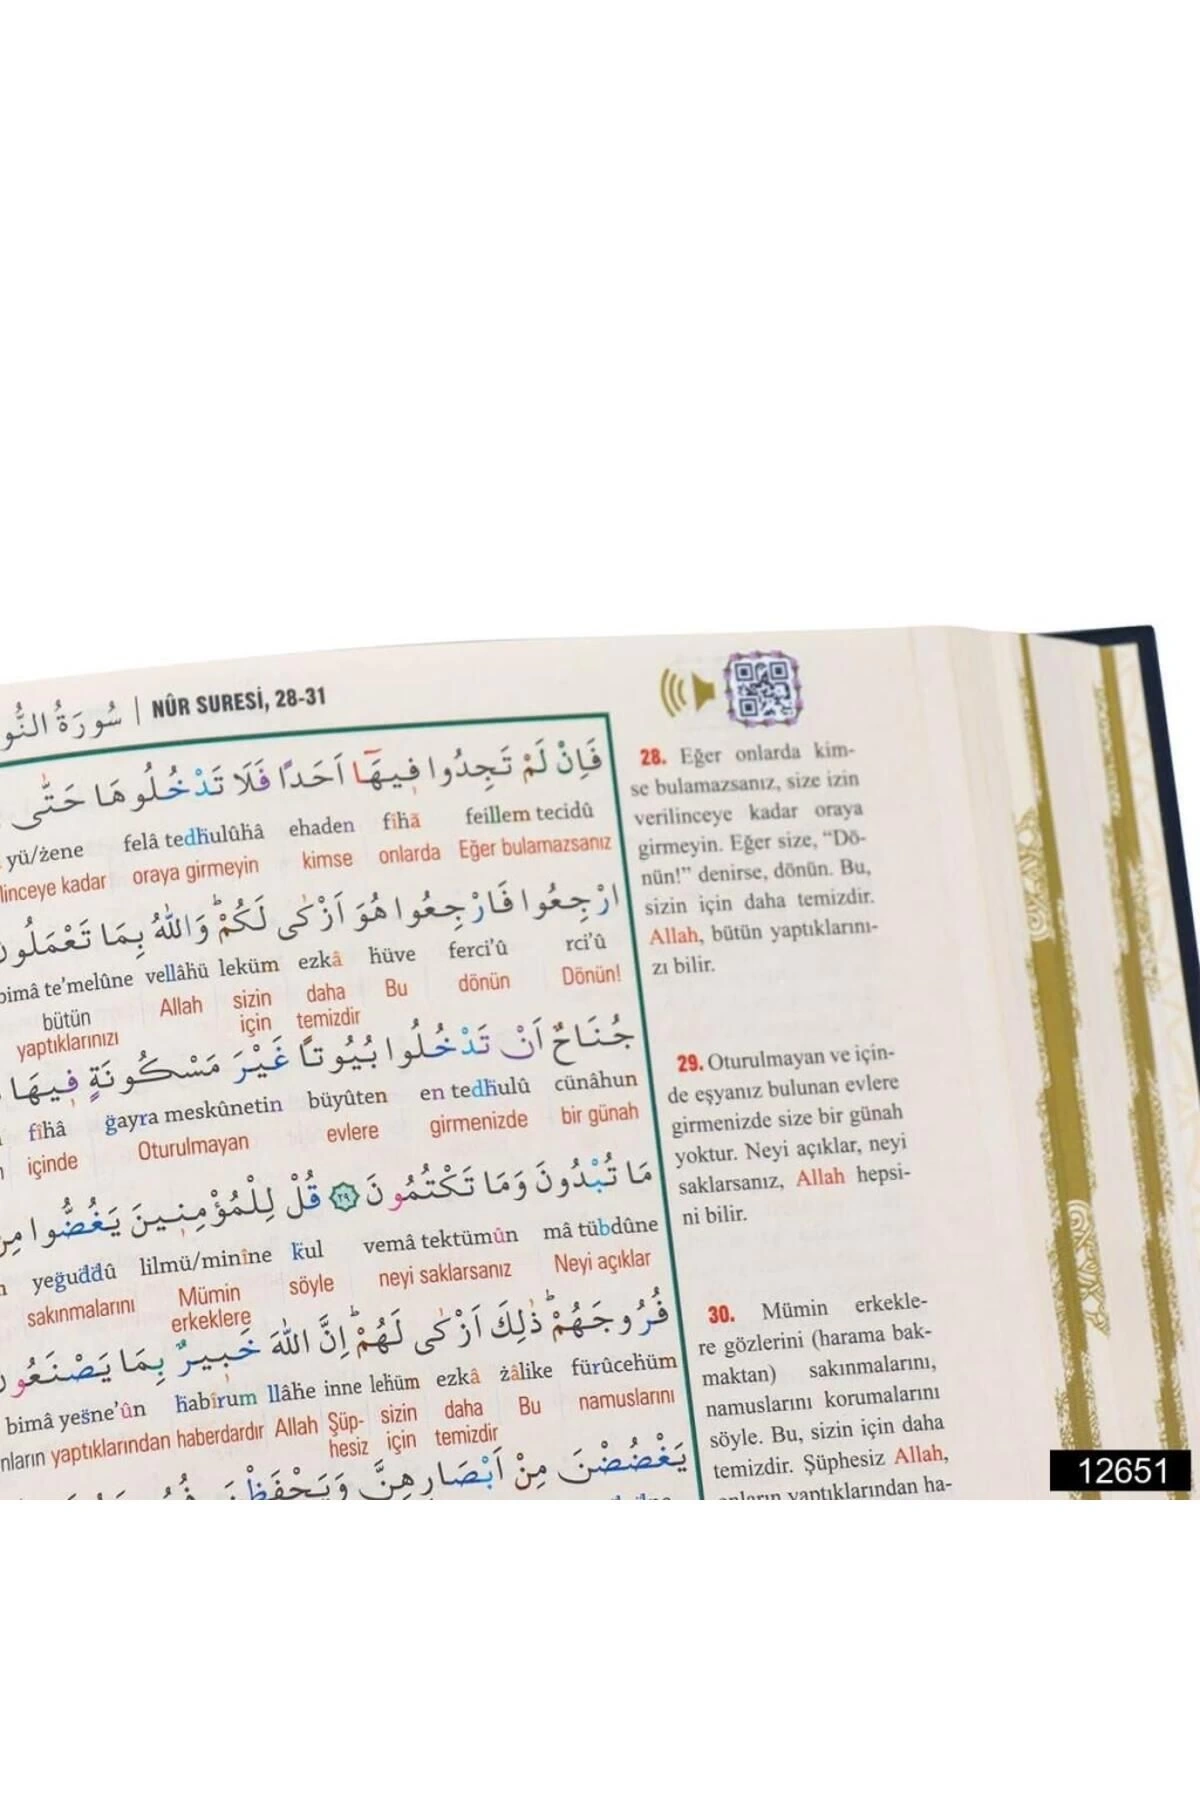 سُورَةُ النُّو | NÛR SURESİ, 28-31
فَاِنْ لَمْ تَجِدُوا فٖيهَٓا اَحَدًا فَلَا تَدْخُلُوهَا حَتّٰى
yü/żene felâ tedḣulûhâ ehaden fîhâ feillem tecidû
linceye kadar oraya girmeyin kimse onlarda Eğer bulamazsanız
ارْجِعُوا فَارْجِعُوا هُوَ اَزْكٰى لَكُمْ وَاللّٰهُ بِمَا تَعْمَلُون
bimâ te'melûne vellâhü leküm ezkâ hüve ferci'û rci'û
bütün yaptıklarınızı Allah sizin için daha temizdir Bu dönün Dönün!
جُنَاحٌ اَنْ تَدْخُلُوا بُيُوتًا غَيْرَ مَسْكُونَةٍ فٖيهَا
fîhâ ğayra meskûnetin büyûten en tedḣulû cünâhun
içinde Oturulmayan evlere girmenizde bir günah
مَا تُبْدُونَ وَمَا تَكْتُمُونَ ٢٩ قُلْ لِلْمُؤْمِنٖينَ يَغُضُّوا مِن
yeğuddû lilmü/minîne kul vemâ tektümûn mâ tübdûne
sakınmalarını Mümin erkeklere söyle neyi saklarsanız Neyi açıklar
فُرُوجَهُمْ ذٰلِكَ اَزْكٰى لَهُمْ اِنَّ اللّٰهَ خَبٖيرٌ بِمَا يَصْنَعُون
bimâ yesne'ûn ḣabîrum llâhe inne lehüm ezkâ żâlike fürûcehüm
nların yaptıklarından haberdardır Allah Şüp-hesiz sizin için daha temizdir Bu namuslarını
يَغْضُضْنَ مِنْ اَبْصَارِهِنَّ وَيَحْفَظْنَ
28. Eğer onlarda kim-
se bulamazsanız, size izin
verilinceye kadar oraya
girmeyin. Eğer size, “Dö-
nün!” denirse, dönün. Bu,
sizin için daha temizdir.
Allah, bütün yaptıklarını-
zı bilir.
29. Oturulmayan ve için-
de eşyanız bulunan evlere
girmenizde size bir günah
yoktur. Neyi açıklar, neyi
saklarsanız, Allah hepsi-
ni bilir.
30. Mümin erkekle-
re gözlerini (harama bak-
maktan) sakınmalarını,
namuslarını korumalarını
söyle. Bu, sizin için daha
temizdir. Şüphesiz Allah,
onların yaptıklarından ha-
12651